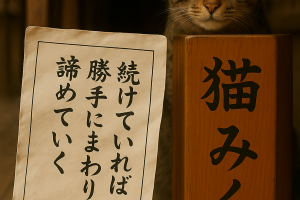 続けていれば
勝手にまわりが
諦めていく
猫みく